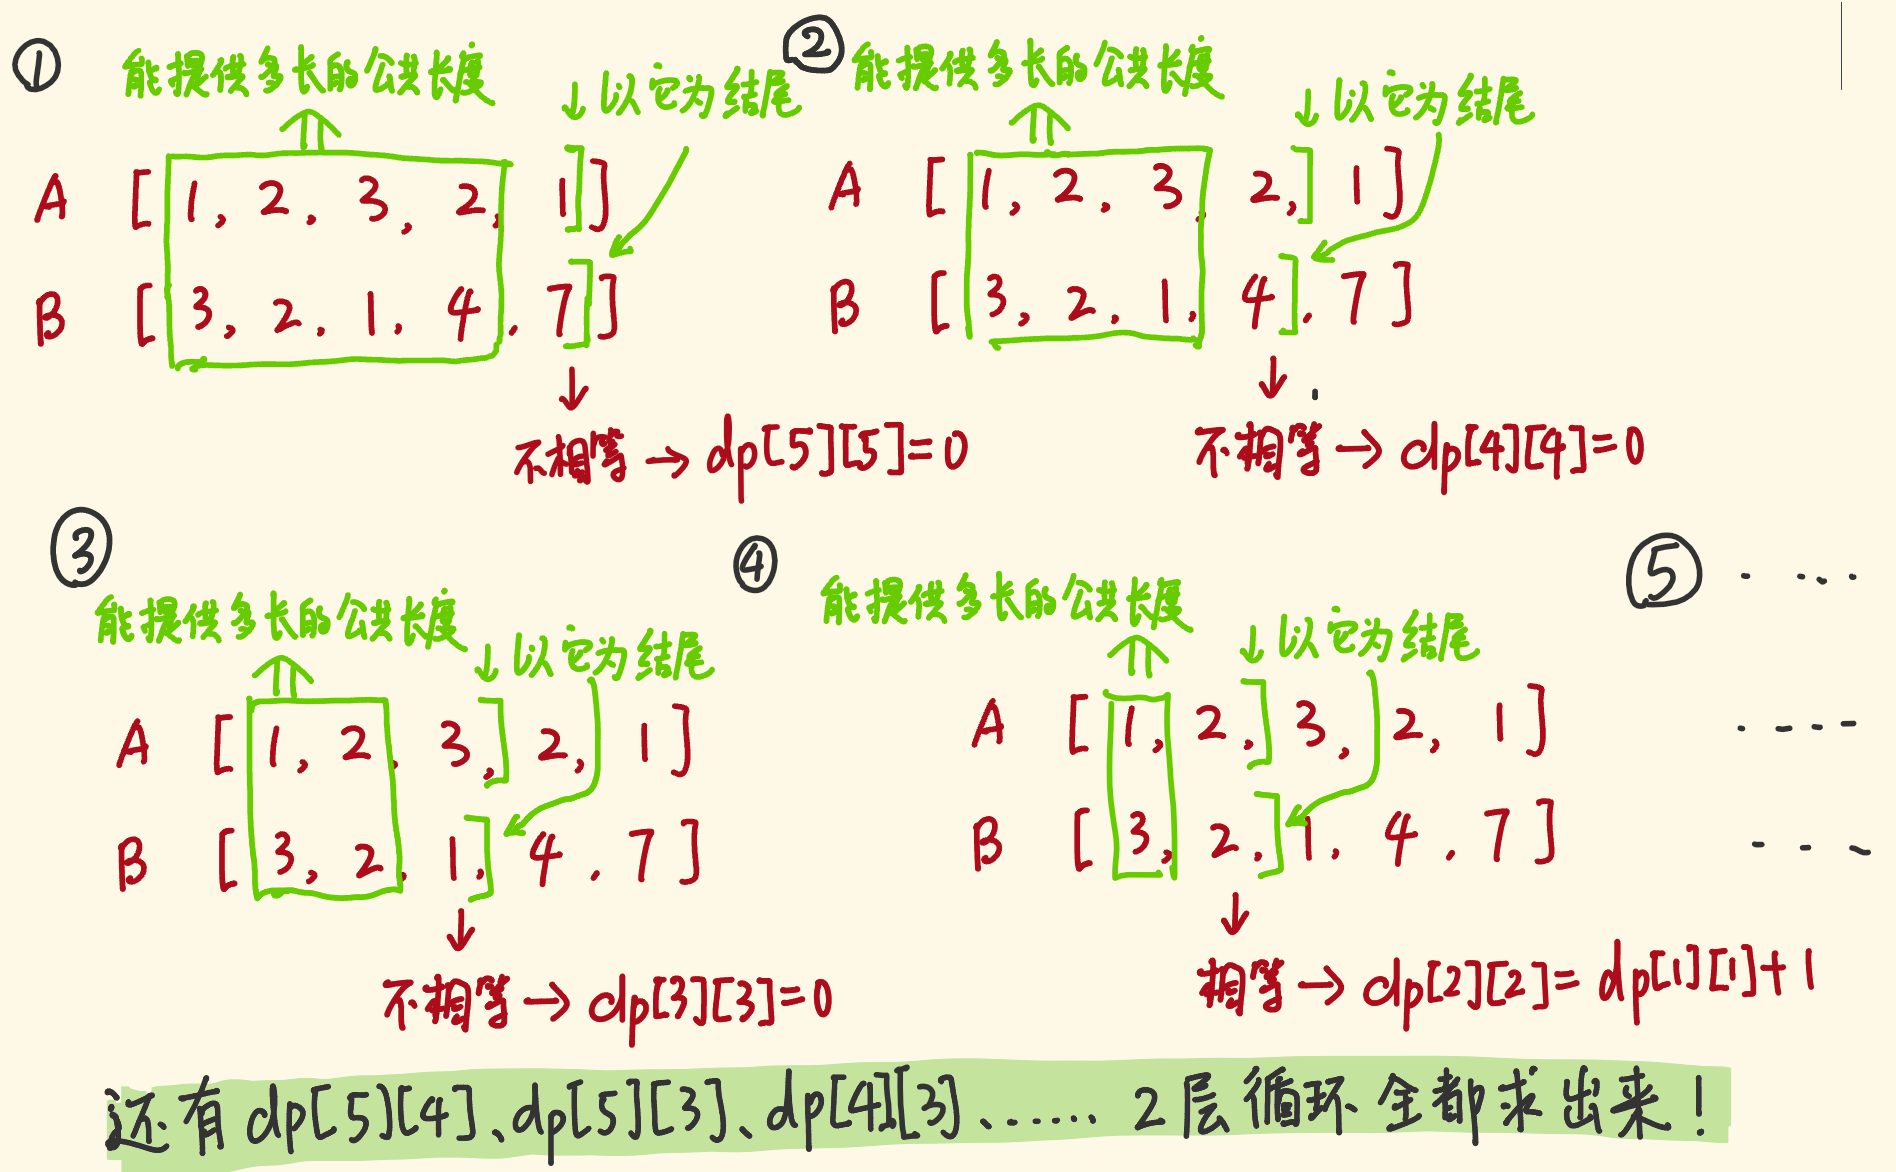 ①
能提供多长的公共长度
↓以它为结尾
A [1, 2, 3, 2, 1]]
B [3, 2, 1, 4, 7]]
↓
不相等→dp[5][5]=0
②
能提供多长的公共长度
↓以它为结尾
A [1, 2, 3, 2,] 1]
B [3, 2, 1, 4], 7]
↓
不相等→dp[4][4]=0
③
能提供多长的公共长度
↓以它为结尾
A [1, 2, 3,] 2, 1]
B [3, 2, 1,] 4, 7]
↓
不相等→dp[3][3]=0
④
能提供多长的公共长度
↓以它为结尾
A [1, 2,] 3, 2, 1]
B [3, 2,] 1, 4, 7]
↓
相等→dp[2][2]=dp[1][1]+1
⑤ ....
....
...
还有dp[5][4]、dp[5][3]、dp[4][3]、...... 2层循环全都求出来！